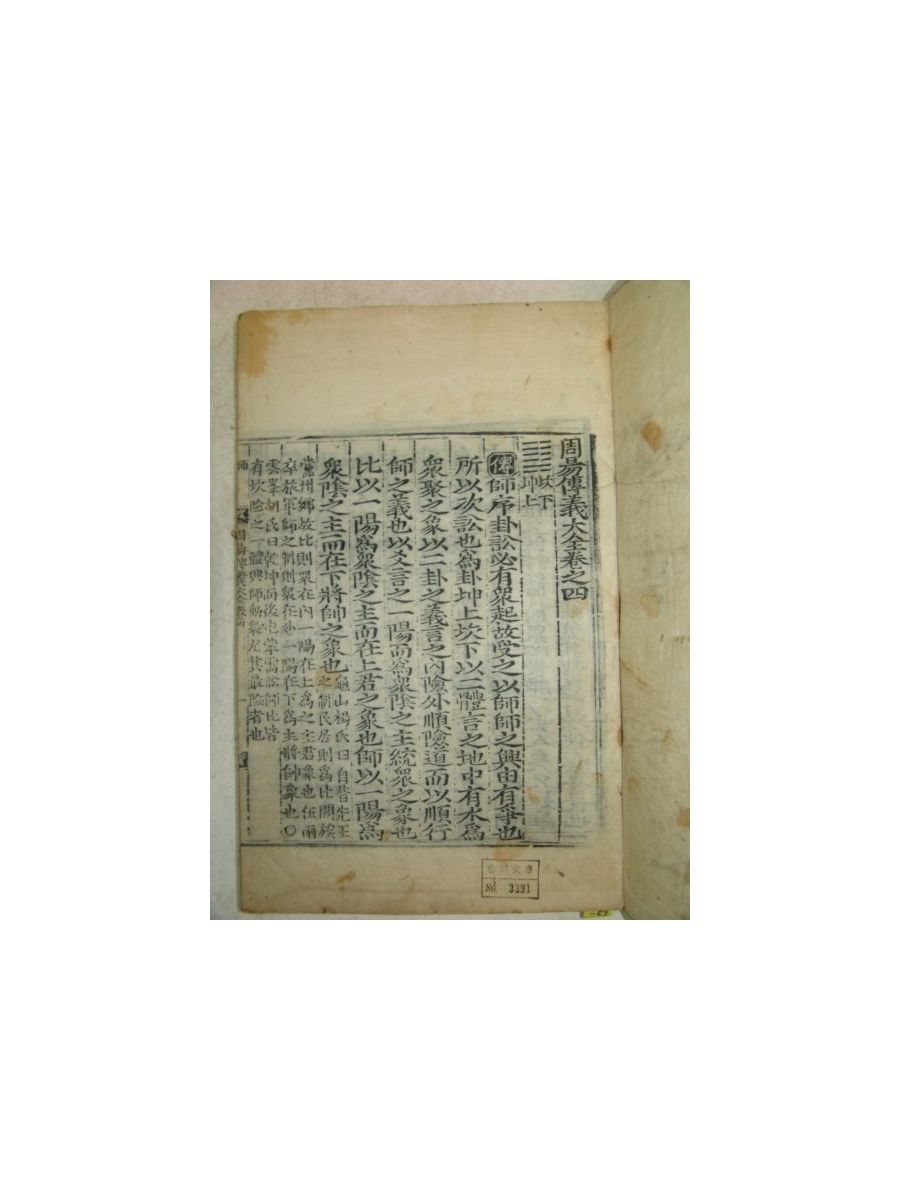 周易傳義大全卷之四
坎下
坤上
傳師序卦訟必有衆起故受之以師師之興由有爭也
所以次訟也爲卦坤上坎下以二體言之地中有水爲
衆聚之象以二卦之義言之內險外順險道而以順行
師之義也以爻言之一陽而爲衆陰之主統衆之象也
比以一陽爲衆陰之主而在上君之象也師以一陽爲
衆陰之主而在下將帥之象也
龜山楊氏曰自昔先王
之制民居則爲比閭族
黨州鄕故比則衆在內一陽在上爲之主君象也伍兩
卒旅軍師之制則衆在外一陽在下爲主將帥象也○
雲峯胡氏曰乾坤而後屯蒙需訟師比皆
有坎險之一體興師動衆尤其最險者也
文庫
No 3391